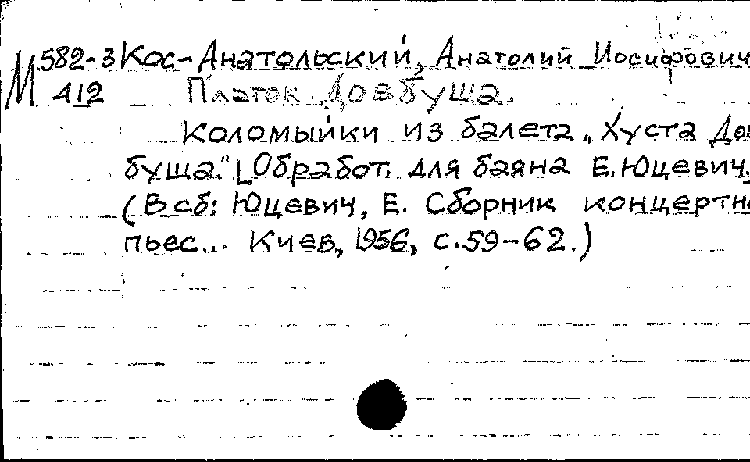 М 582-3 Кос-Анатольский, Анатолий Иосифович
412 Платок Довбуша.
Коломыйки из балета „Хуста Дов
буша." [Обработ. для баяна Е. Юцевич.
(В сб: Юцевич, Е. Сборник концертн
пьес... Киев, 1956, с. 59-62.)